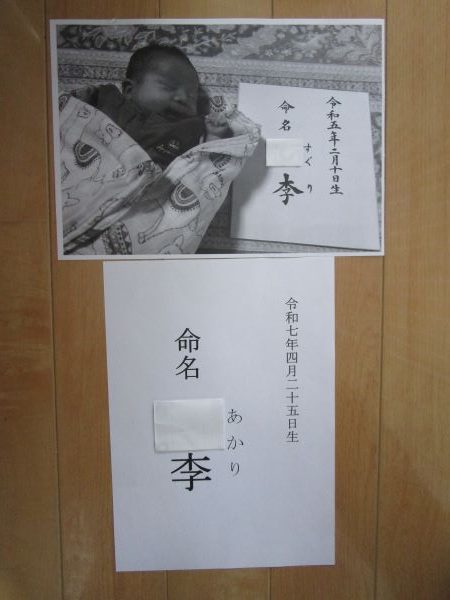 令和五年二月十日生
命名
すぐり
李
令和七年四月二十五日生
命名
あかり
李